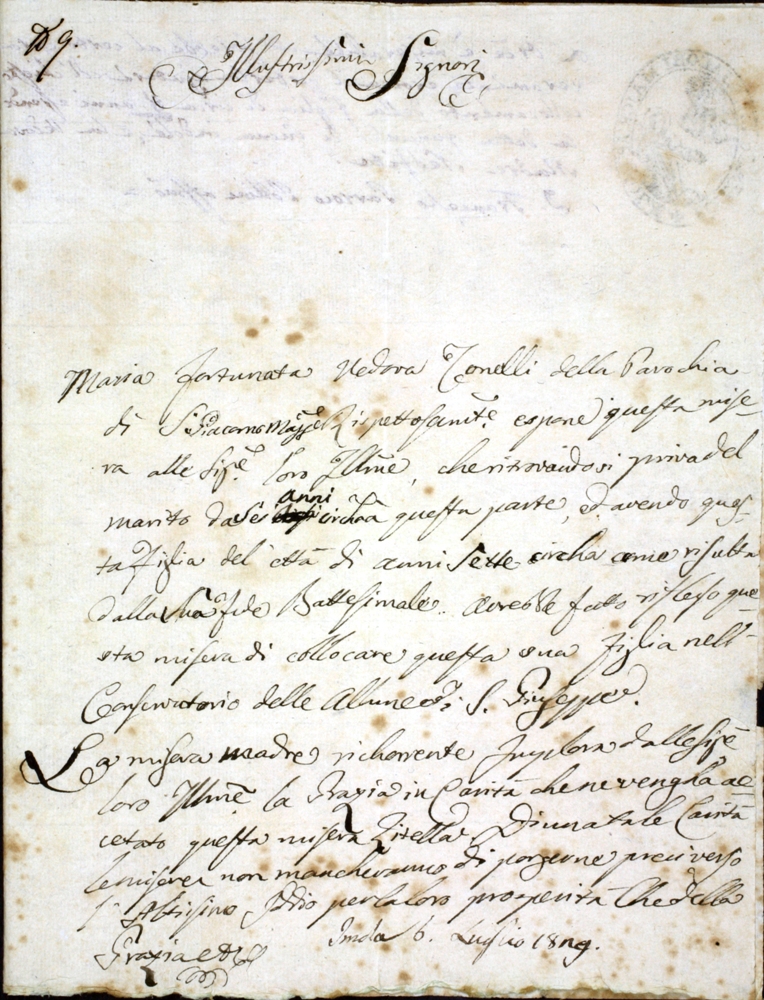 N 9.
Illustrissimi Signori
Maria Fortunata Vedova Tonelli della Parochia
di S. Giacomo Magge Rispettosamte. espone questa mise-
ra alle Sige. loro Illme, che ritrovandosi priva del
marito da sei anni circha a questa parte, ed avendo ques-
ta Figlia del età di anni sette circha come risulta
dalla sua fede Battesimale. avrebbe fatto riflesso que-
sta misera di collocare questa sua Figlia nell'
Conservatorio delle Allune di S. Giuseppe.
La misera madre richorrente Implora dalle Sige
loro Illme la Grazia in Carità che ne venghà ac
cetato questa misera Zitella, Di una tale Carità
le misere non mancheranno di porgerne preci verso
l'Altisimo Iddio per la loro prosperità Che della
Grazia
Imola 6. Luglio 1829.